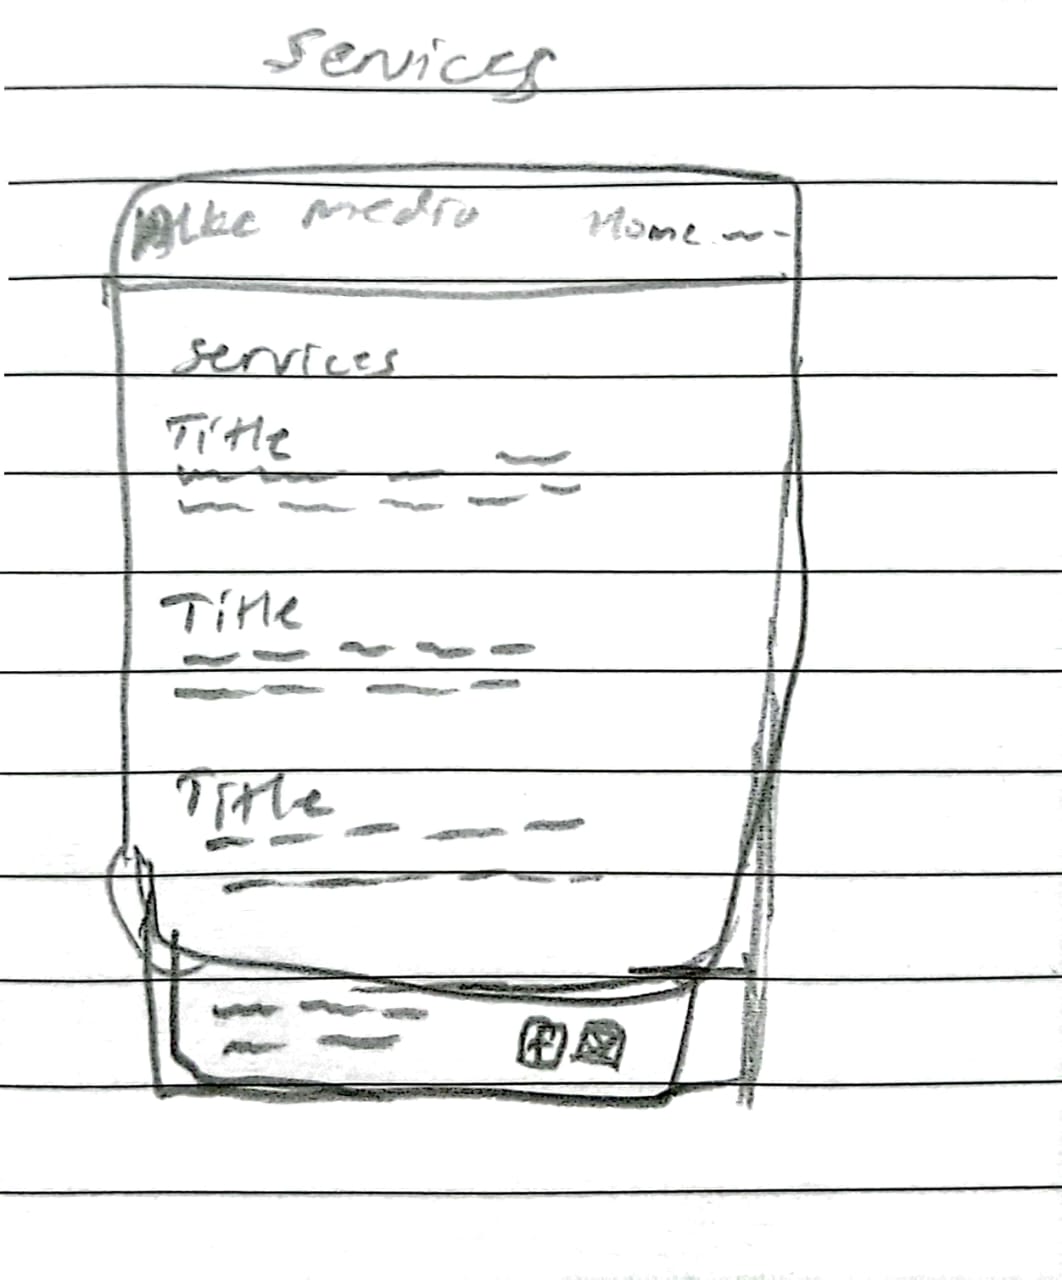 Services
Alke Media Home
Services
Title
Title
Title
f